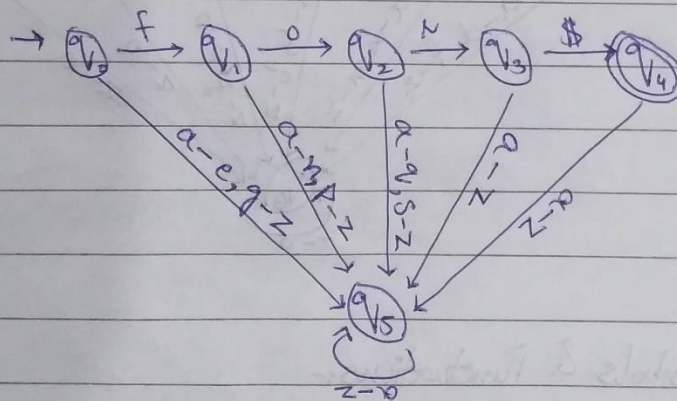 → q₀ f q₁ o q₂ r q₃ $ q₄
a-e, g-z a-n, p-z a-q, s-z a-z a-z
q₅
a-z